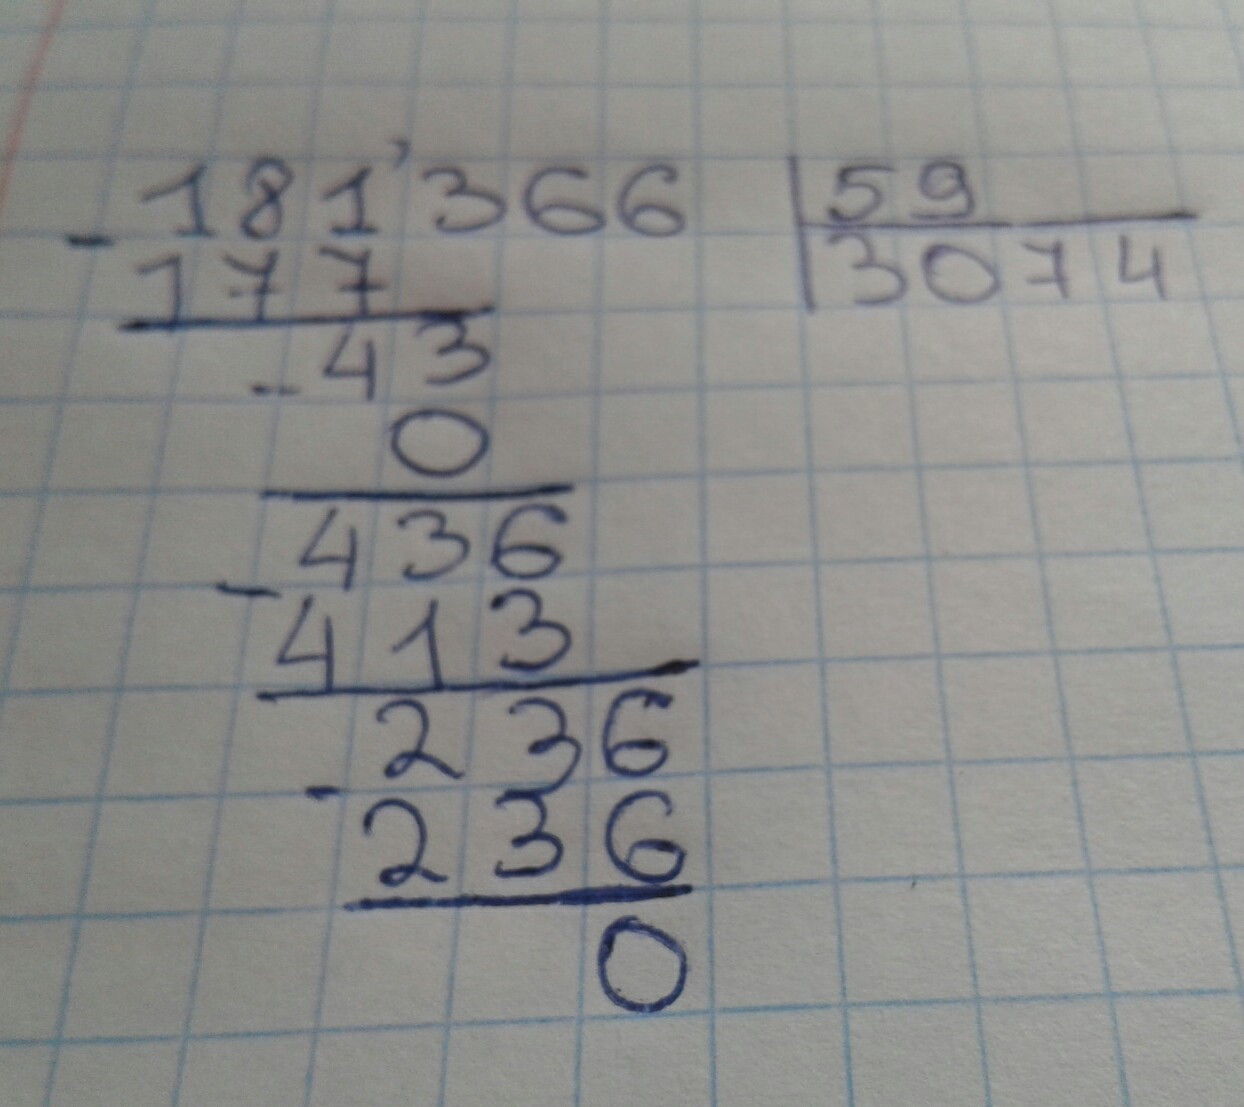 - 181'366 | 59
177 | 3074
- 43
0
- 436
413
- 236
236
0